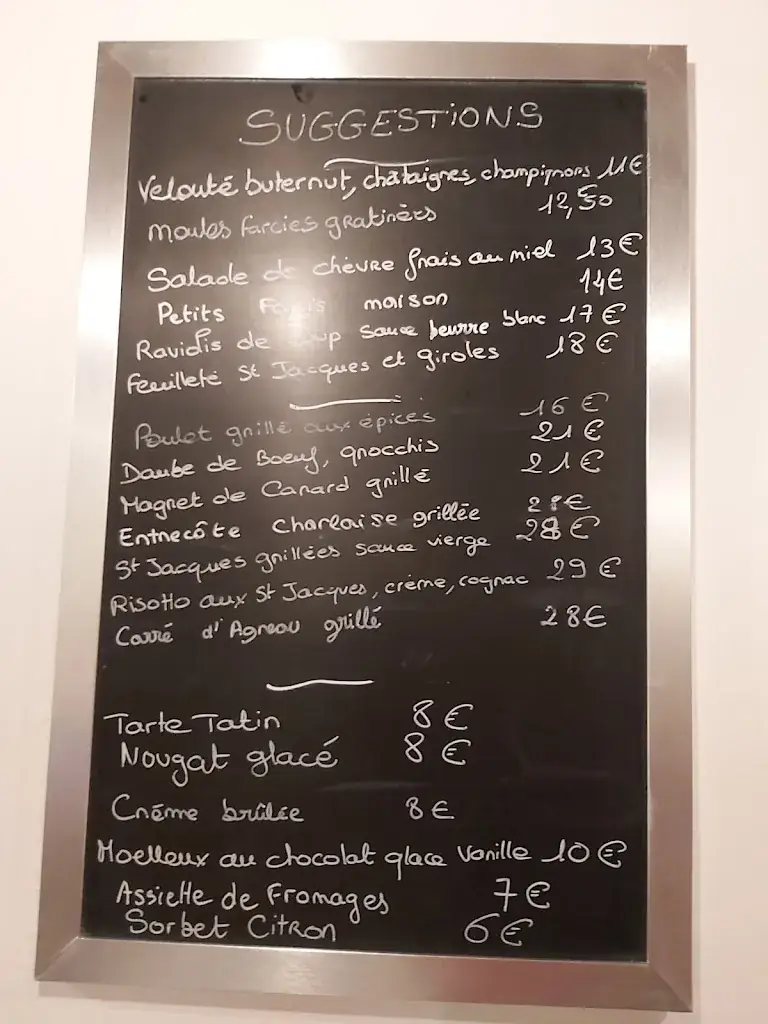 SUGGESTIONS
Velouté buternut, châtaignes, champignons 11€
Moules farcies gratinées 12,50
Salade de chèvre frais au miel 13€
Petits maison 14€
Raviolis de Loup sauce beurre blanc 17€
Feuilleté St Jacques et giroles 18€
Poulet grillé aux épices 16€
Daube de Boeuf, gnocchis 21€
Magret de Canard grillé 21€
Entrecôte Charolaise grillée
St Jacques grillées sauce vierge 28€
Risotto aux St Jacques, crème, cognac 29€
Carré d'Agneau grillé 28€
Tarte Tatin 8€
Nougat glacé 8€
Crème brûlée 8€
Moelleux au chocolat glace Vanille 10€
Assiette de Fromages 7€
Sorbet Citron 6€